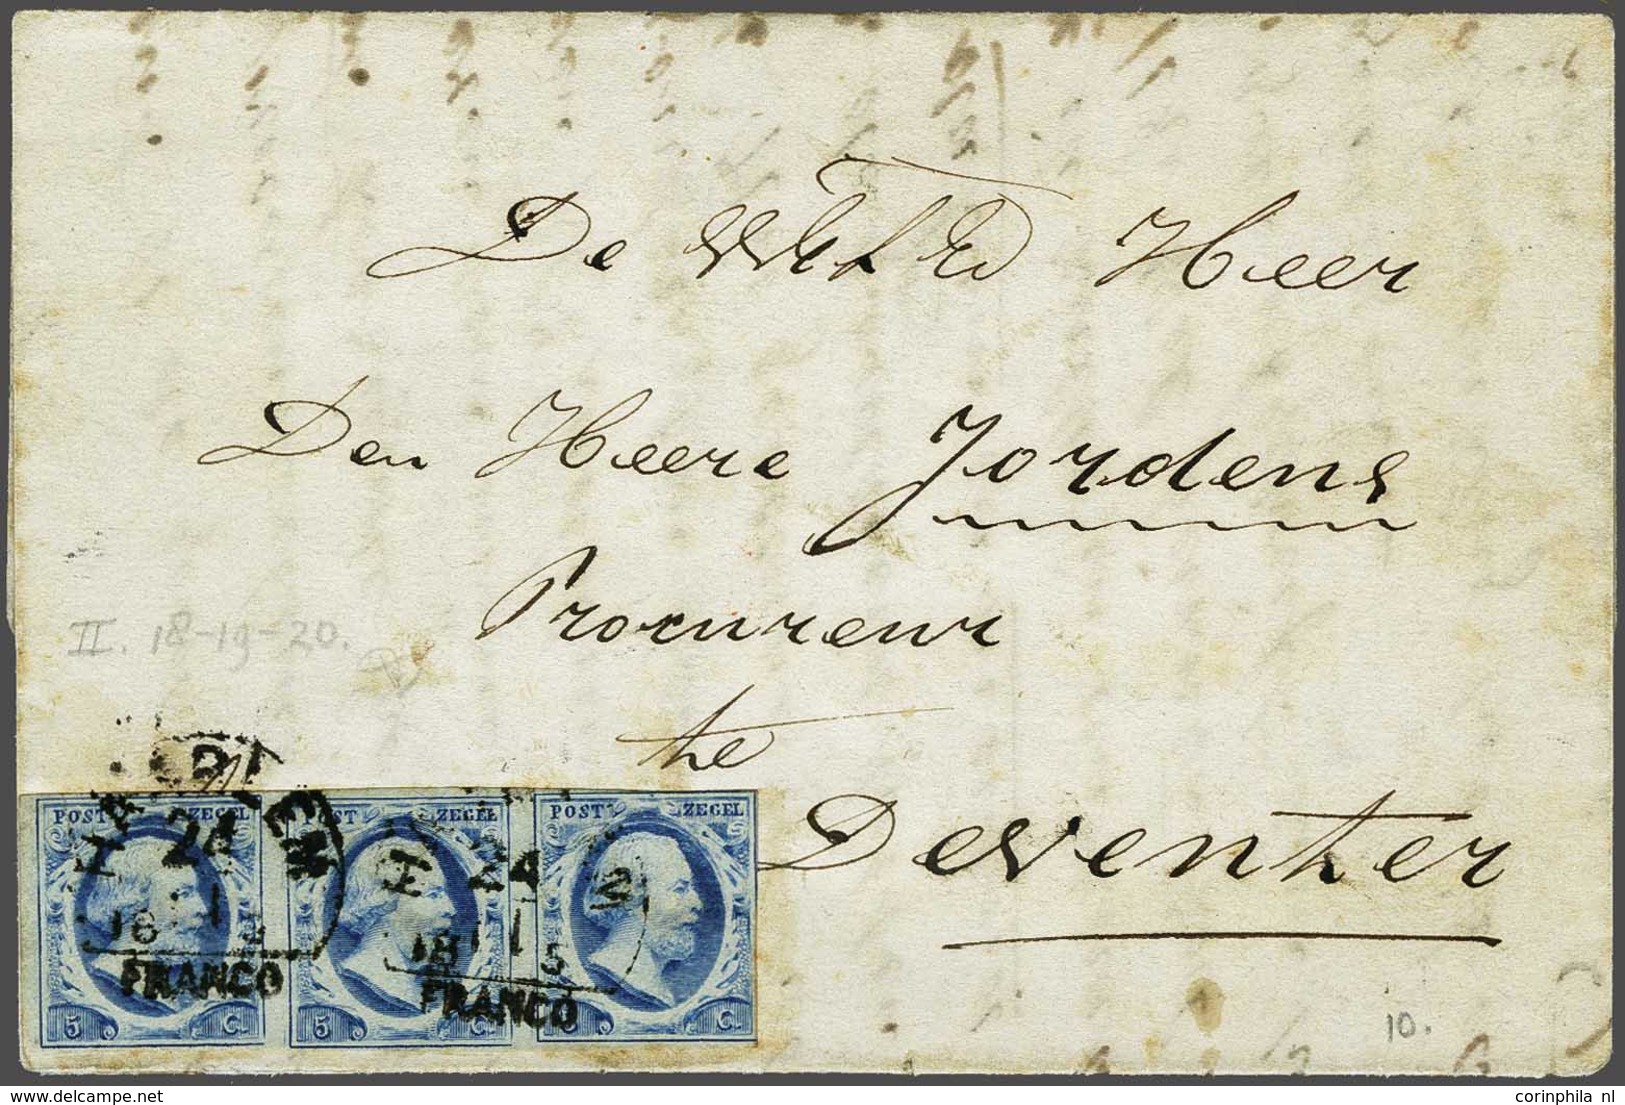 De Heer
Den Heere Jordens
Procureur
te
Deventer
II. 18-19-20.
HAARLEM
24
FRANCO
24
FRANCO
POST ZEGEL
POST ZEGEL
POST ZEGEL
5 C.
5 C.
5 C.
10.
corinphila nl